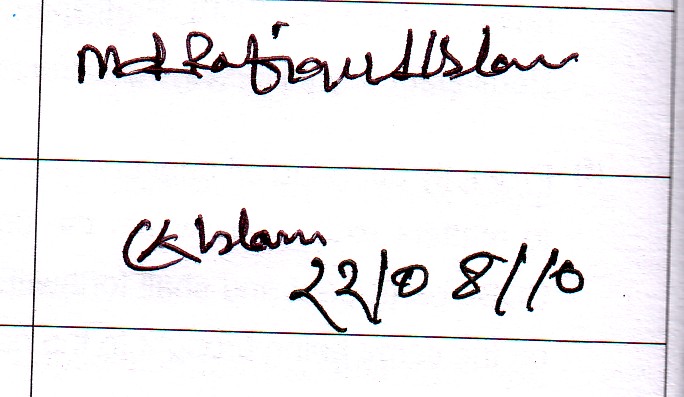 Md Rafiqul Islam
Islam
22/08/10